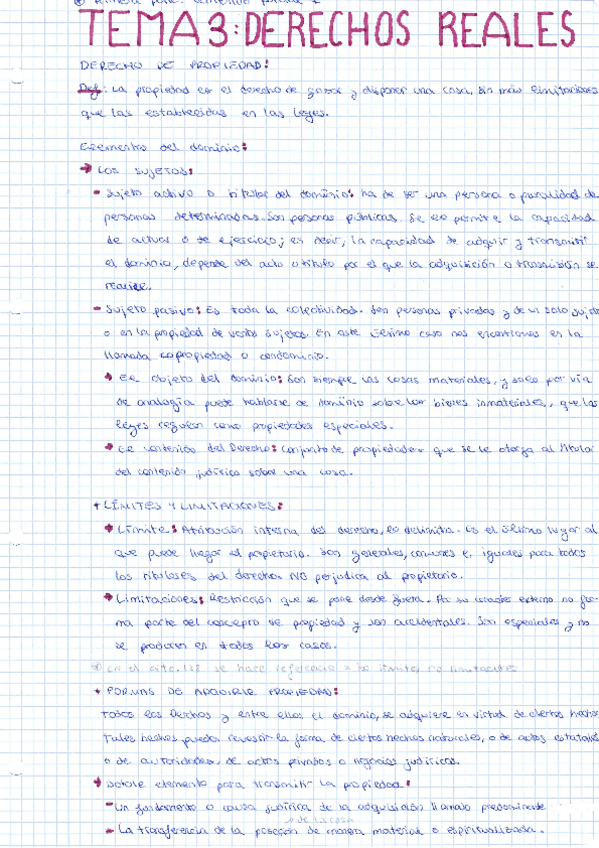 TEMA 3: DERECHOS REALES
DERECHO DE PROPIEDAD:
Def: La propiedad es el derecho de gozar y disponer una cosa, sin más limitaciones
que las establecidas en las leyes.
Elementos del dominio:
→ Los sujetos:
- Sujeto activo o titular del dominio: ha de ser una persona o pluralidad de
personas determinadas. Son personas públicas. Se le permite la capacidad
de actuar o de ejercicio; es decir, la capacidad de adquirir y transmitir
el dominio, depende del acto o título por el que la adquisición o transmisión se
realice.
- Sujeto pasivo: Es toda la colectividad. Son personas privadas y de un solo sujeto
o en la propiedad de varios sujetos. En este último caso nos encontramos en la
llamada copropiedad o condominio.
→ El objeto del dominio: Son siempre las cosas materiales, y solo por vía
de analogía puede hablarse de dominio sobre los bienes inmateriales, que las
leyes regulan como propiedades especiales.
→ El contenido del Derecho: Conjunto de propiedades que se le otorga al titular
del contenido jurídico sobre una cosa.
+ LÍMITES Y LIMITACIONES:
→ Límite: Atribución interna del derecho, lo delimita. Es el último lugar al
que puede llegar el propietario. Son generales, comunes e iguales para todos
los titulares del derecho. NO perjudica al propietario.
→ Limitaciones: Restricción que se pone desde fuera. Por su carácter externo no for-
ma parte del concepto de propiedad y son accidentales. Son especiales y no
se producen en todos los casos.
En el se hace referencia a los límites, no limitaciones
+ FORMAS DE ADQUIRIR PROPIEDAD:
Todos los Derechos y entre ellos el dominio, se adquiere en virtud de ciertos hechos.
Tales hechos pueden revestir la forma de ciertos hechos naturales, o de actos estatales
o de autoridades, de actos privados o negocios jurídicos.
→ Doble elemento para transmitir la propiedad:
- Un fundamento o causa jurídica de la adquisición llamado
o de la cosa
- La transferencia de la posesión de manera material o espiritualizada.